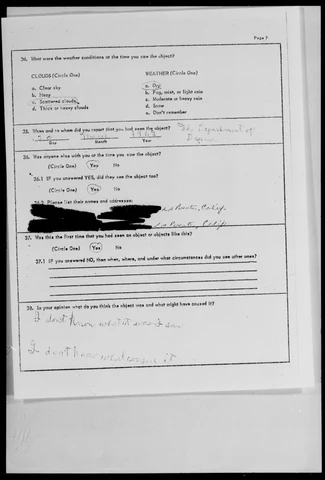 Page 7
34. What were the weather conditions at the time you saw the object?
CLOUDS (Circle One) WEATHER (Circle One)
a. Clear sky a. Dry
b. Hazy b. Fog, mist, or light rain
c. Scattered clouds c. Moderate or heavy rain
d. Thick or heavy clouds d. Snow
e. Don't remember
35. When and to whom did you report that you had seen the object? The Department of
Day Month Year
36. Was anyone else with you at the time you saw the object?
(Circle One) Yes No
36.1 IF you answered YES, did they see the object too?
(Circle One) Yes No
36.2 Please list their names and addresses:
Calif
Calif
37. Was this the first time that you had seen an object or objects like this?
(Circle One) Yes No
37.1 IF you answered NO, then when, where, and under what circumstances did you see other ones?
38. In your opinion what do you think the object was and what might have caused it?
I don't know what it was I saw
I don't know what caused it